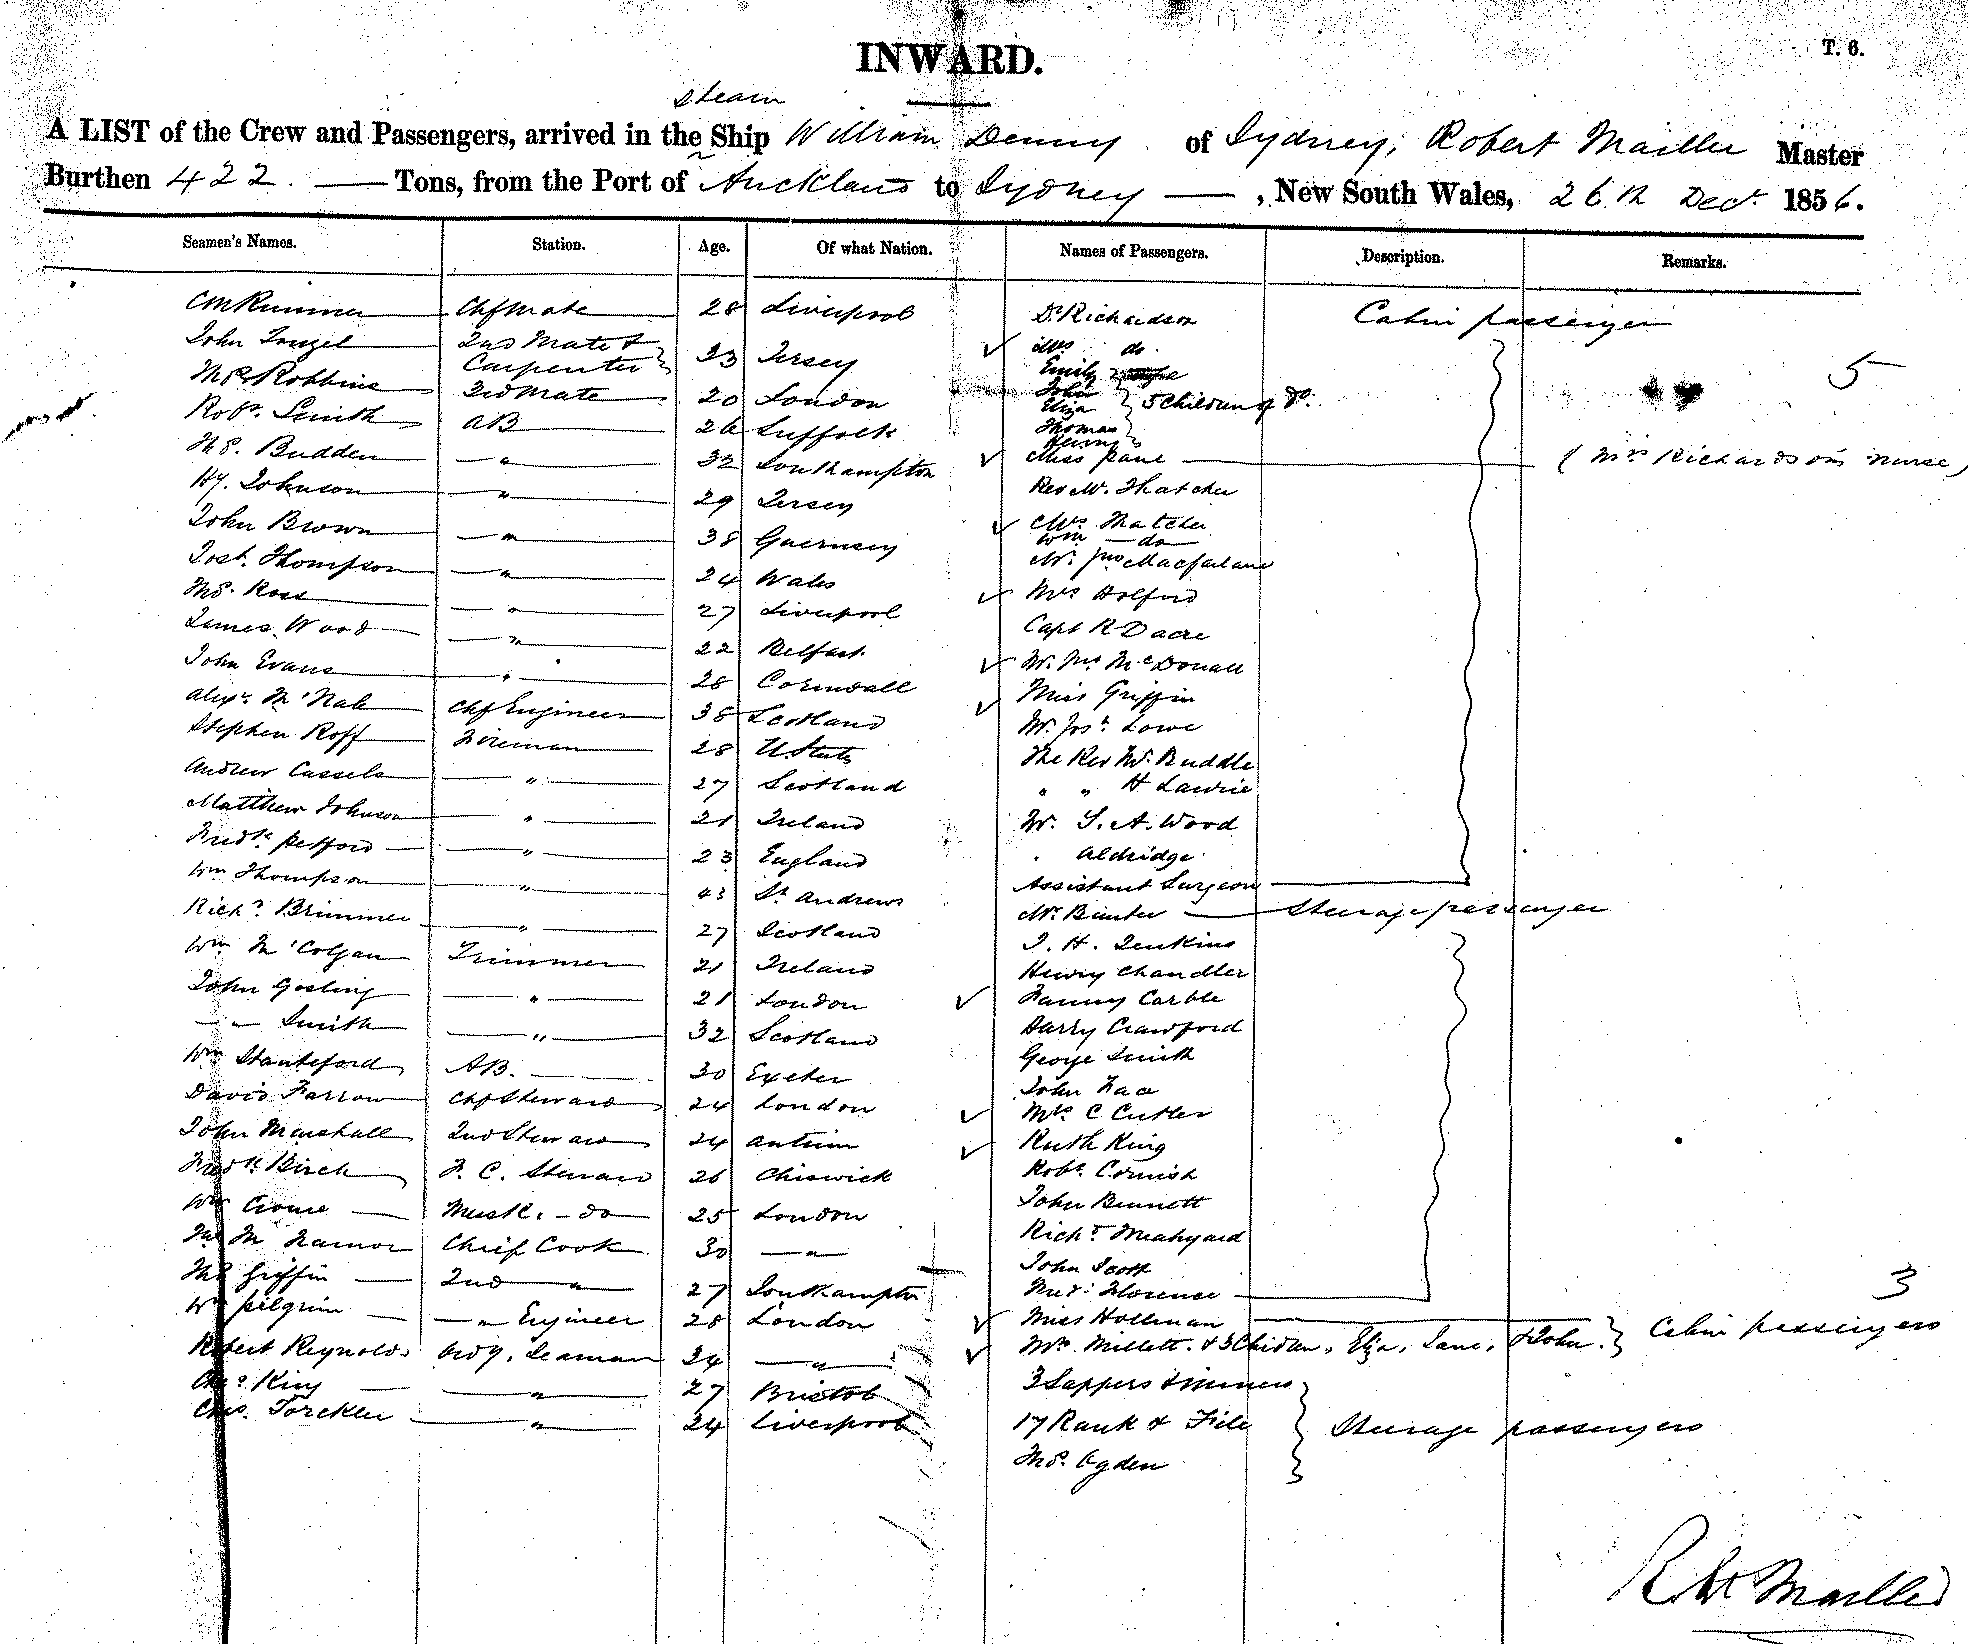 INWARD.
T. 6.
steam
A LIST of the Crew and Passengers, arrived in the Ship William Denny of Sydney, Robert Mailler Master
Burthen 422. — Tons, from the Port of Auckland to Sydney — , New South Wales, 26th Decr. 1856.
Seamen's Names. Station. Age. Of what Nation. Names of Passengers. Description. Remarks.
Chf Mate 28 Liverpool
John 2nd Mate & Carpenter 23 Jersey
Thos Robbins 3rd Mate 20 London
Robt. Smith AB 26 Suffolk
Thos. Budden — " 32 Southampton
Hy. Johnson — " 29 Jersey
John Brown — " 38 Guernsey
Josh. Thompson — " 24 Wales
Thos. Ross — " 27 Liverpool
James Wood — " 22 Belfast
John Evans — " 28 Cornwall
Alexr. McNab Chf Engineer 38 Scotland
Stephen Roff Fireman 28 U. States
Andrew Cassels — " 27 Scotland
Matthew Johnson — " 21 Ireland
Fredk. Petford — " 23 England
Wm Thompson — " 43 St. Andrews
Richd. Brimmer — " 27 Scotland
Wm McColgan Trimmer 21 Ireland
John Gosling — " 21 London
— " Smith — " 32 Scotland
Wm AB. 30 Exeter
David Farrow Chf Steward 24 London
John Marshall 2nd Steward 24 Antrim
Fredk. Birch F. C. Steward 26 Chiswick
Wm Crome — do 25 London
Chief Cook 30 — "
Thos Griffin 2nd " 27 Southampton
Wm Pilgrim — " Engineer 28 London
Robert Reynolds Ordy. Seaman 24 — "
Chas. King — " 27 Bristol
Chas. — " 24 Liverpool
Dr Richardson Cabin passenger
Mrs do.
Emily
John
Eliza 5 Children of Do.
Thomas
Henry
5
Miss Pane — (Mrs Richardson's nurse)
Rev. W. Thatcher
Mrs Thatcher
Wm — do
Mr. Jno Macfarlane
Mrs Holford
Capt R Dacre
Mr. McDonall
Miss Griffin
Mr. Josh. Lowe
The Rev Mr. Buddle
" " H Lawrie
Mr. S. A. Wood
" Aldridge
Assistant Surgeon
Mr. — Steerage passenger
J. H. Jenkins
Henry Chandler
Fanny Carble
Harry Crawford
George Smith
John
Mrs C Cutler
Ruth King
Robt. Cornish
John Bennett
Richd. Meahyard
John Scott
Florence
3
Miss Hollman
Mrs. Millett. & 3 Children, Eliza, Jane, & John. Cabin passengers
3 Sappers & miners
17 Rank & File Steerage passengers
Thos. Ogden
Robt Mailler